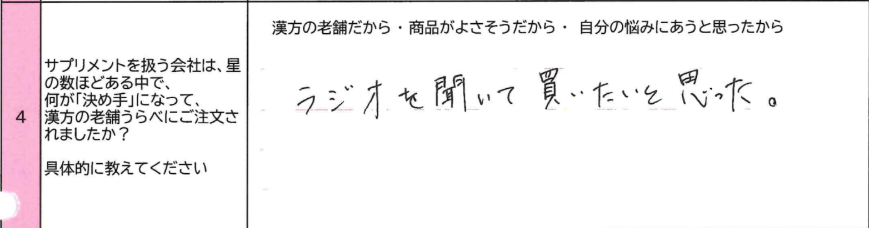 漢方の老舗だから ・ 商品がよさそうだから ・ 自分の悩みにあうと思ったから
4
サプリメントを扱う会社は、星
の数ほどある中で、
何が「決め手」になって、
漢方の老舗うらべにご注文さ
れましたか？
具体的に教えてください
ラジオを聞いて買いたいと思った。